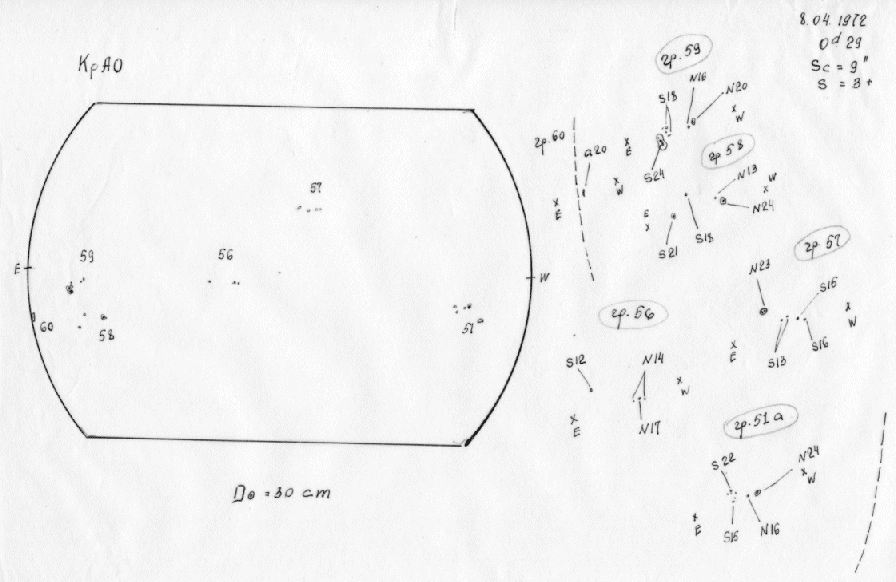 8.04.1972
0ᵈ 29
Sc = 9"
S = 3+
КрАО
57
59
56
E
W
60
58
51ᵃ
D⊙ = 30 cm
гр. 59
N16
S18
N20
x
W
x
E
S24
гр. 60
a20
x
W
x
E
гр. 58
N13
W
x
N24
E
x
S21
S18
гр. 57
N23
S15
x
W
x
E
S13
S16
гр. 56
S12
N14
x
W
x
E
N17
гр. 51а
S22
N24
x
W
x
E
S15
N16